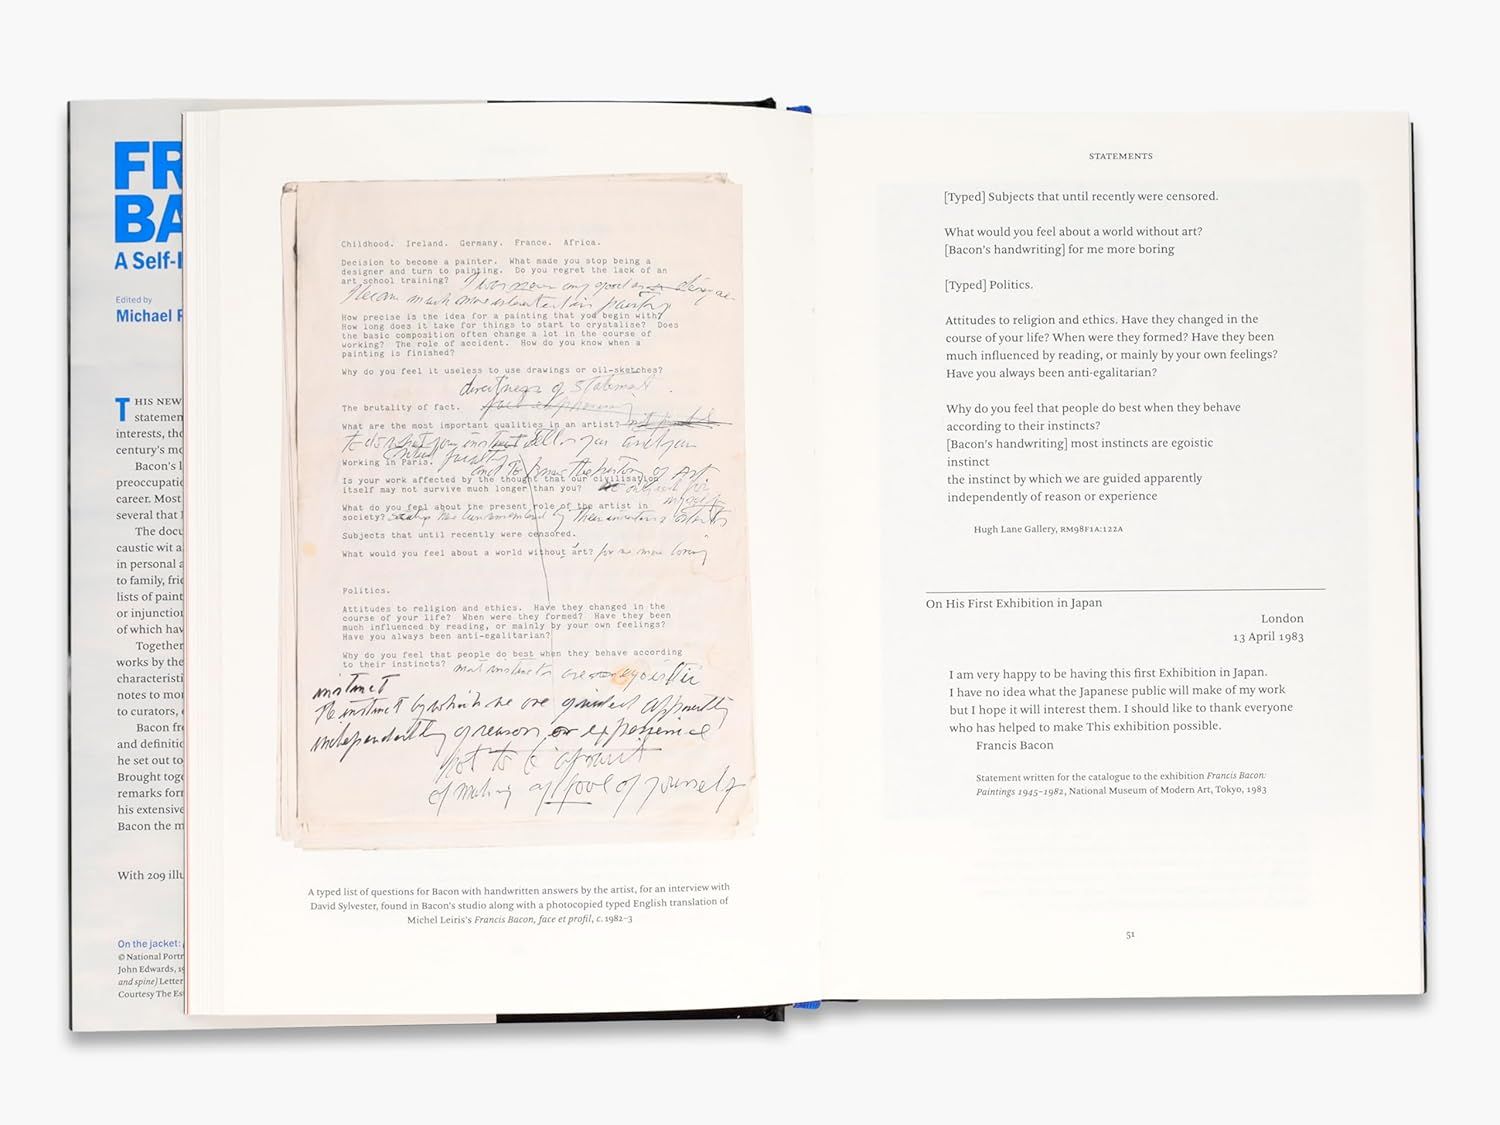 FR
BA
A Self-
Edited by
Michael
THIS NEW
statemen
interests, the
century's mo
Bacon's l
preoccupatio
career. Most
several that
The docu
caustic wit a
in personal a
to family, frie
lists of paint
or injunction
of which hav
Together
works by the
characteristi
notes to mor
to curators,
Bacon fre
and definitio
he set out to
Brought toge
remarks form
his extensive
Bacon the m
With 209 illu
On the jacket:
© National Portr
John Edwards, 19
and spine) Letter
Courtesy The Es
Childhood. Ireland. Germany. France. Africa.
Decision to become a painter. What made you stop being a
designer and turn to painting. Do you regret the lack of an
art school training? I was never any good as a designer
I became much more interested in painting
How precise is the idea for a painting that you begin with?
How long does it take for things to start to crystalise? Does
the basic composition often change a lot in the course of
working? The role of accident. How do you know when a
painting is finished?
Why do you feel it useless to use drawings or oil-sketches?
directness of statement
The brutality of fact.
What are the most important qualities in an artist?
to do what your instinct tells you
Working in Paris.
and to know the history of Art
Is your work affected by the thought that our civilisation
itself may not survive much longer than you?
What do you feel about the present role of the artist in
society?
Subjects that until recently were censored.
What would you feel about a world without art? for me more boring
Politics.
Attitudes to religion and ethics. Have they changed in the
course of your life? When were they formed? Have they been
much influenced by reading, or mainly by your own feelings?
Have you always been anti-egalitarian?
Why do you feel that people do best when they behave according
to their instincts? most instincts are egoistic
instinct
the instinct by which we are guided apparently
independently of reason or experience
not to be afraid
of making a fool of yourself
A typed list of questions for Bacon with handwritten answers by the artist, for an interview with
David Sylvester, found in Bacon's studio along with a photocopied typed English translation of
Michel Leiris's Francis Bacon, face et profil, c. 1982–3
STATEMENTS
[Typed] Subjects that until recently were censored.
What would you feel about a world without art?
[Bacon's handwriting] for me more boring
[Typed] Politics.
Attitudes to religion and ethics. Have they changed in the
course of your life? When were they formed? Have they been
much influenced by reading, or mainly by your own feelings?
Have you always been anti-egalitarian?
Why do you feel that people do best when they behave
according to their instincts?
[Bacon's handwriting] most instincts are egoistic
instinct
the instinct by which we are guided apparently
independently of reason or experience
Hugh Lane Gallery, RM98F1A:122A
On His First Exhibition in Japan
London
13 April 1983
I am very happy to be having this first Exhibition in Japan.
I have no idea what the Japanese public will make of my work
but I hope it will interest them. I should like to thank everyone
who has helped to make This exhibition possible.
Francis Bacon
Statement written for the catalogue to the exhibition Francis Bacon:
Paintings 1945–1982, National Museum of Modern Art, Tokyo, 1983
51